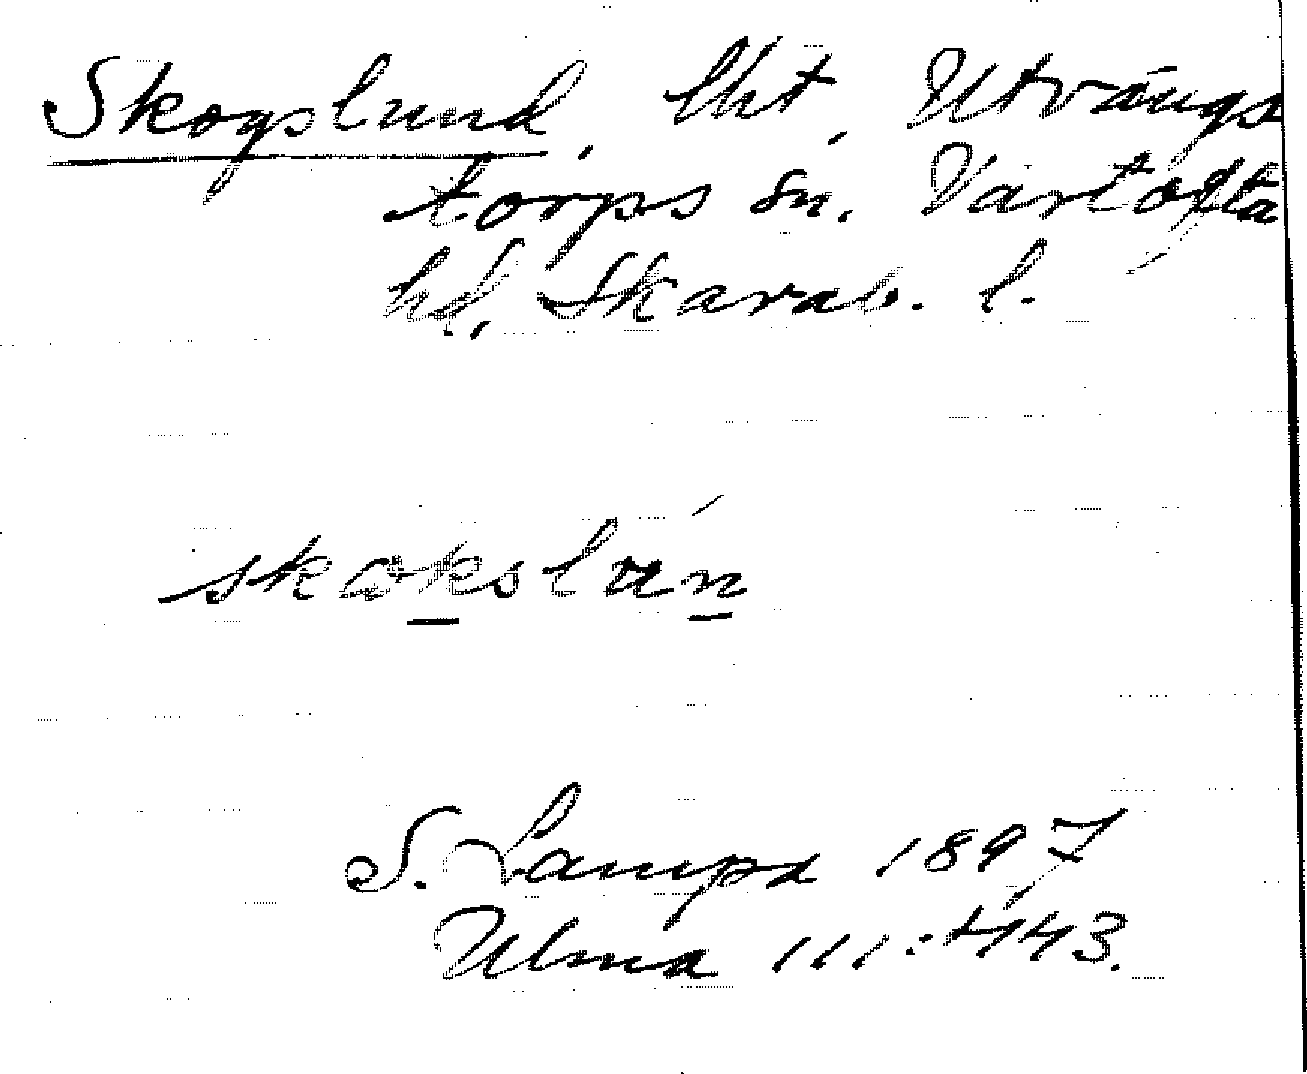 Skogslund, lht, Utvängs
torps sn. Vartofta
hd, Skarab. l.
skokslún
S. Lampa 1897
Ulma 111:443.